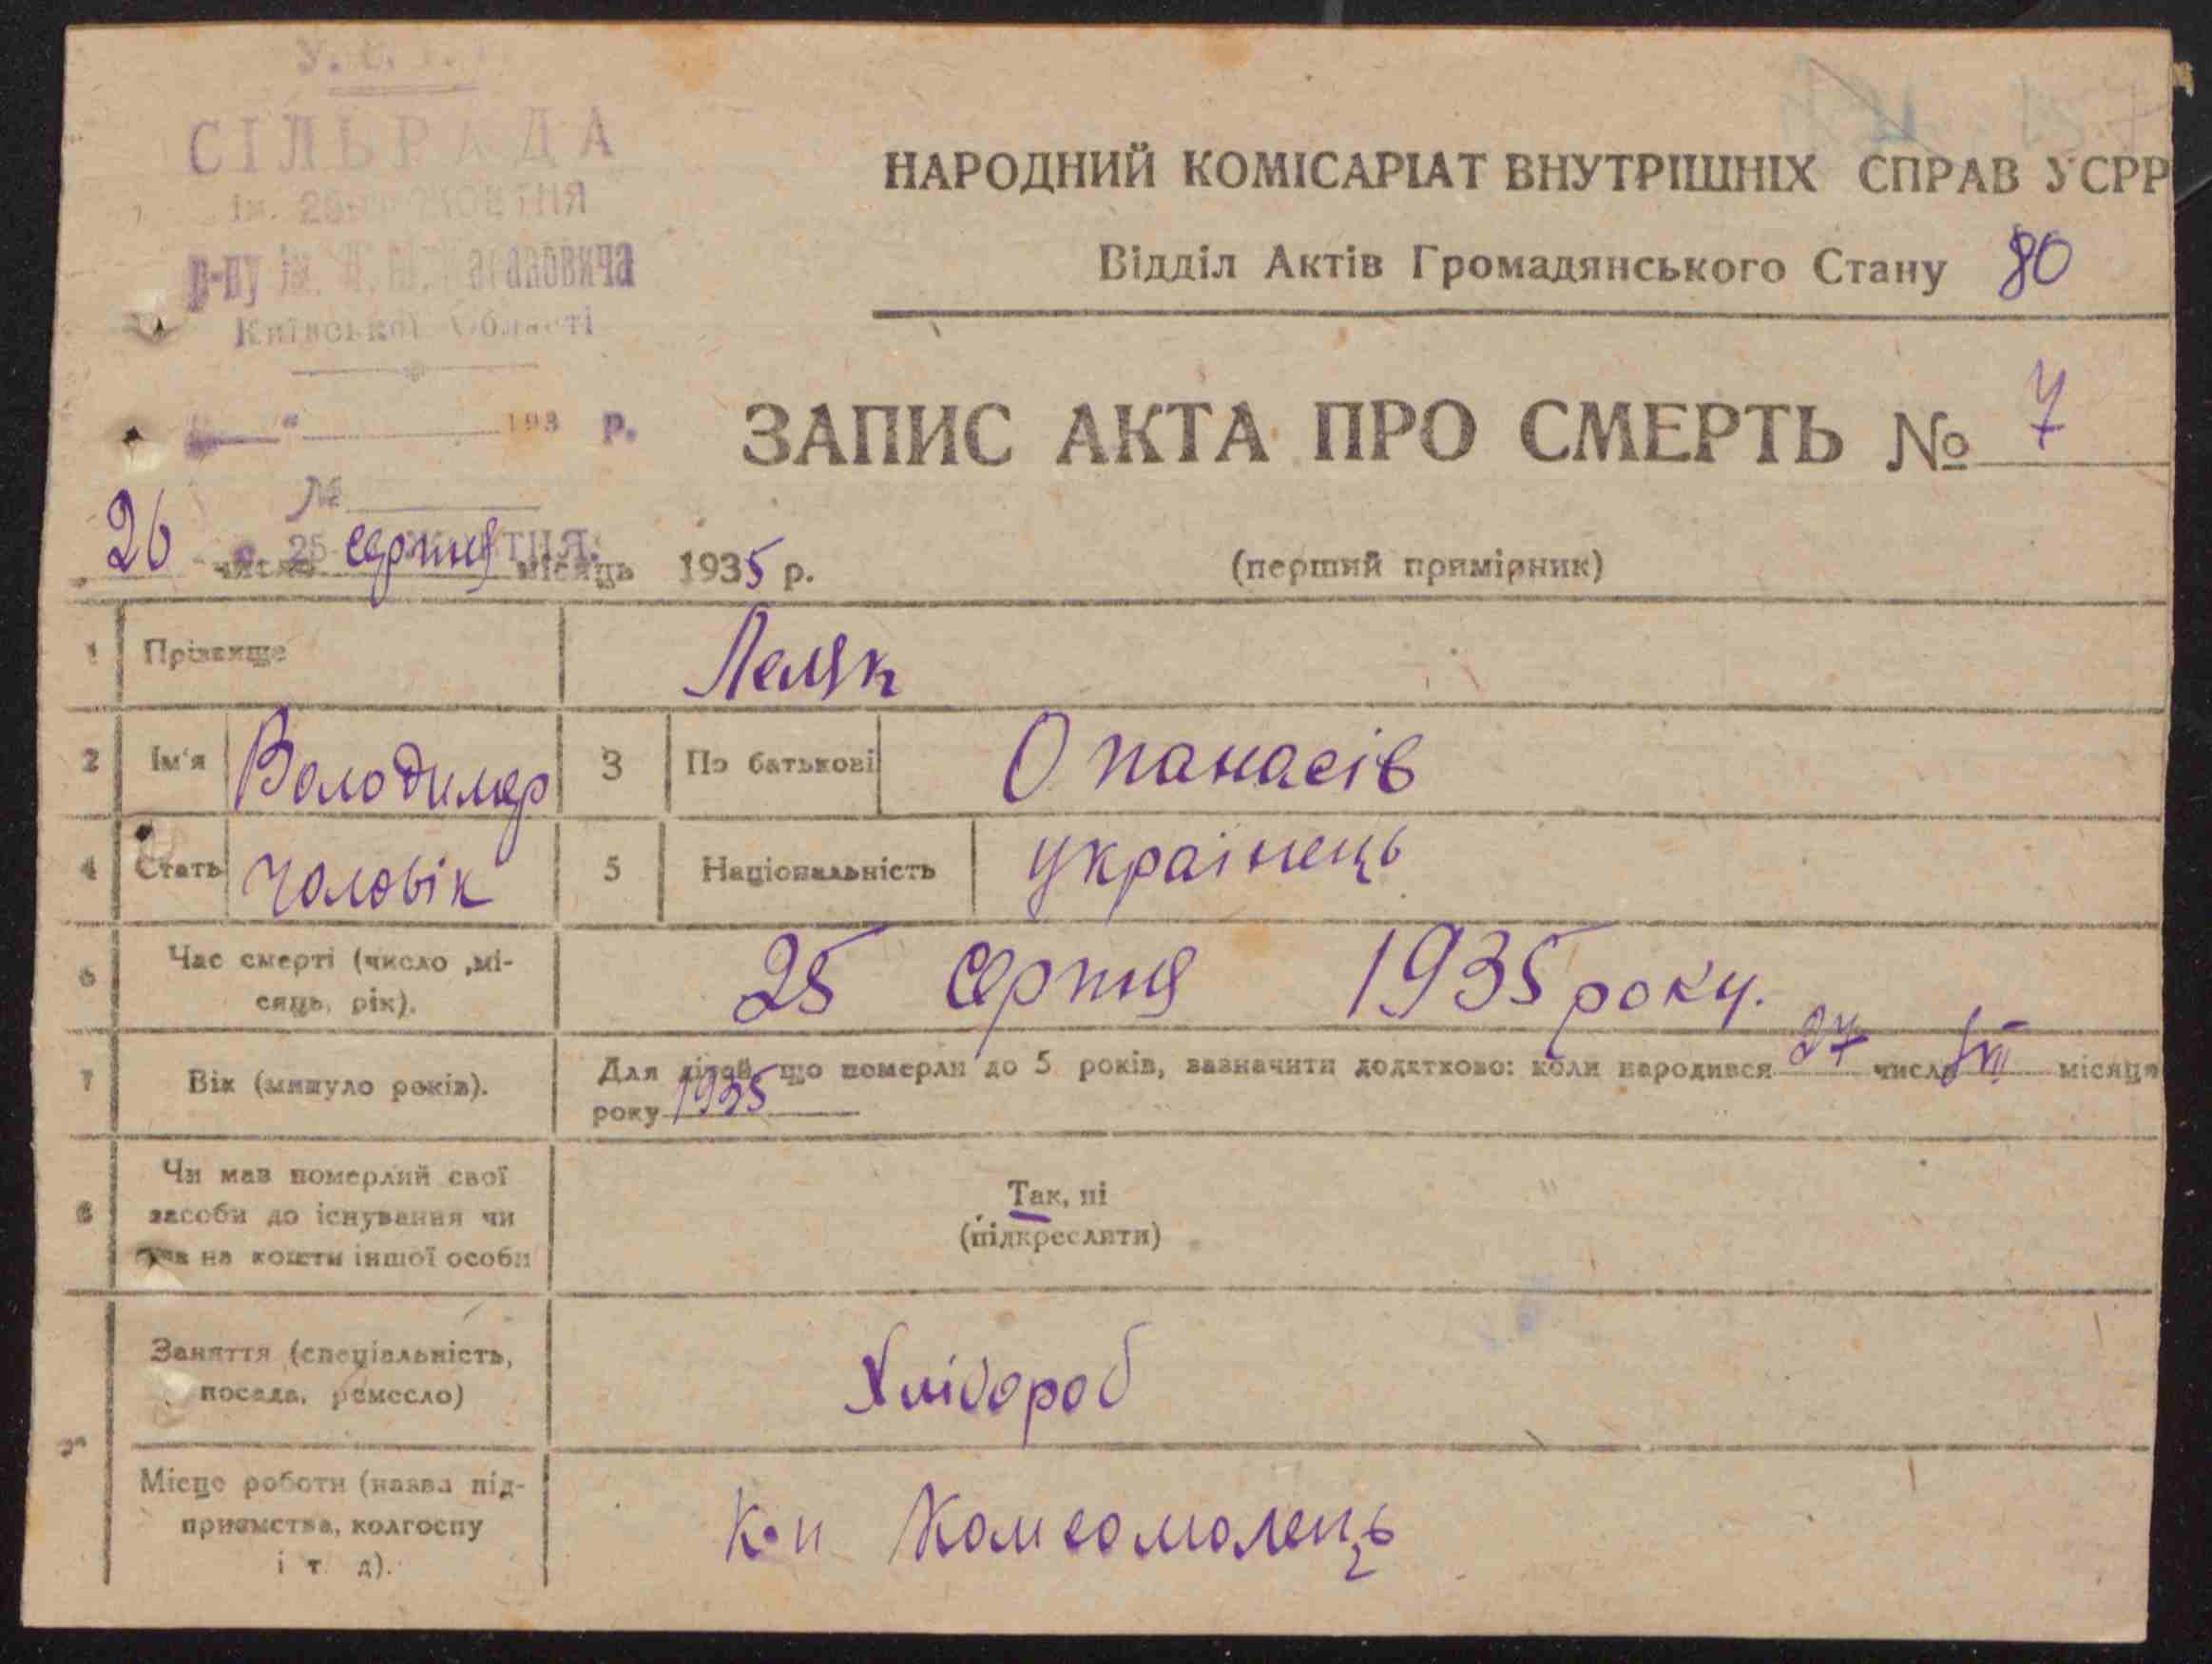 СІЛЬРАДА
ім. 25- ЖОВТНЯ
р-ну ім. Л. М. Кагановича
Київської Області
НАРОДНИЙ КОМІСАРІАТ ВНУТРІШНІХ СПРАВ УСРР
Відділ Актів Громадянського Стану 80
193 р.
ЗАПИС АКТА ПРО СМЕРТЬ № 7
№
26 число серпня місяць 1935 р.
(перший примірник)
1 Прізвище Леляк
2 Ім'я Володимер 3 По батькові Опанасів
4 Стать Чоловік 5 Національність українець
6 Час смерті (число, мі-
сяць, рік). 25 серпня 1935 року.
7 Вік (минуло років). Для дітей, що померли до 5 років, зазначити додатково: коли народився 27 число VII місяця
року 1935
8 Чи мав померлий свої
засоби до існування чи
був на кошти іншої особи
Так, ні
(підкреслити)
9 Заняття (спеціальність,
посада, ремесло) Хлібороб
Місце роботи (назва під-
приємства, колгоспу
і т. д). Комсомолець